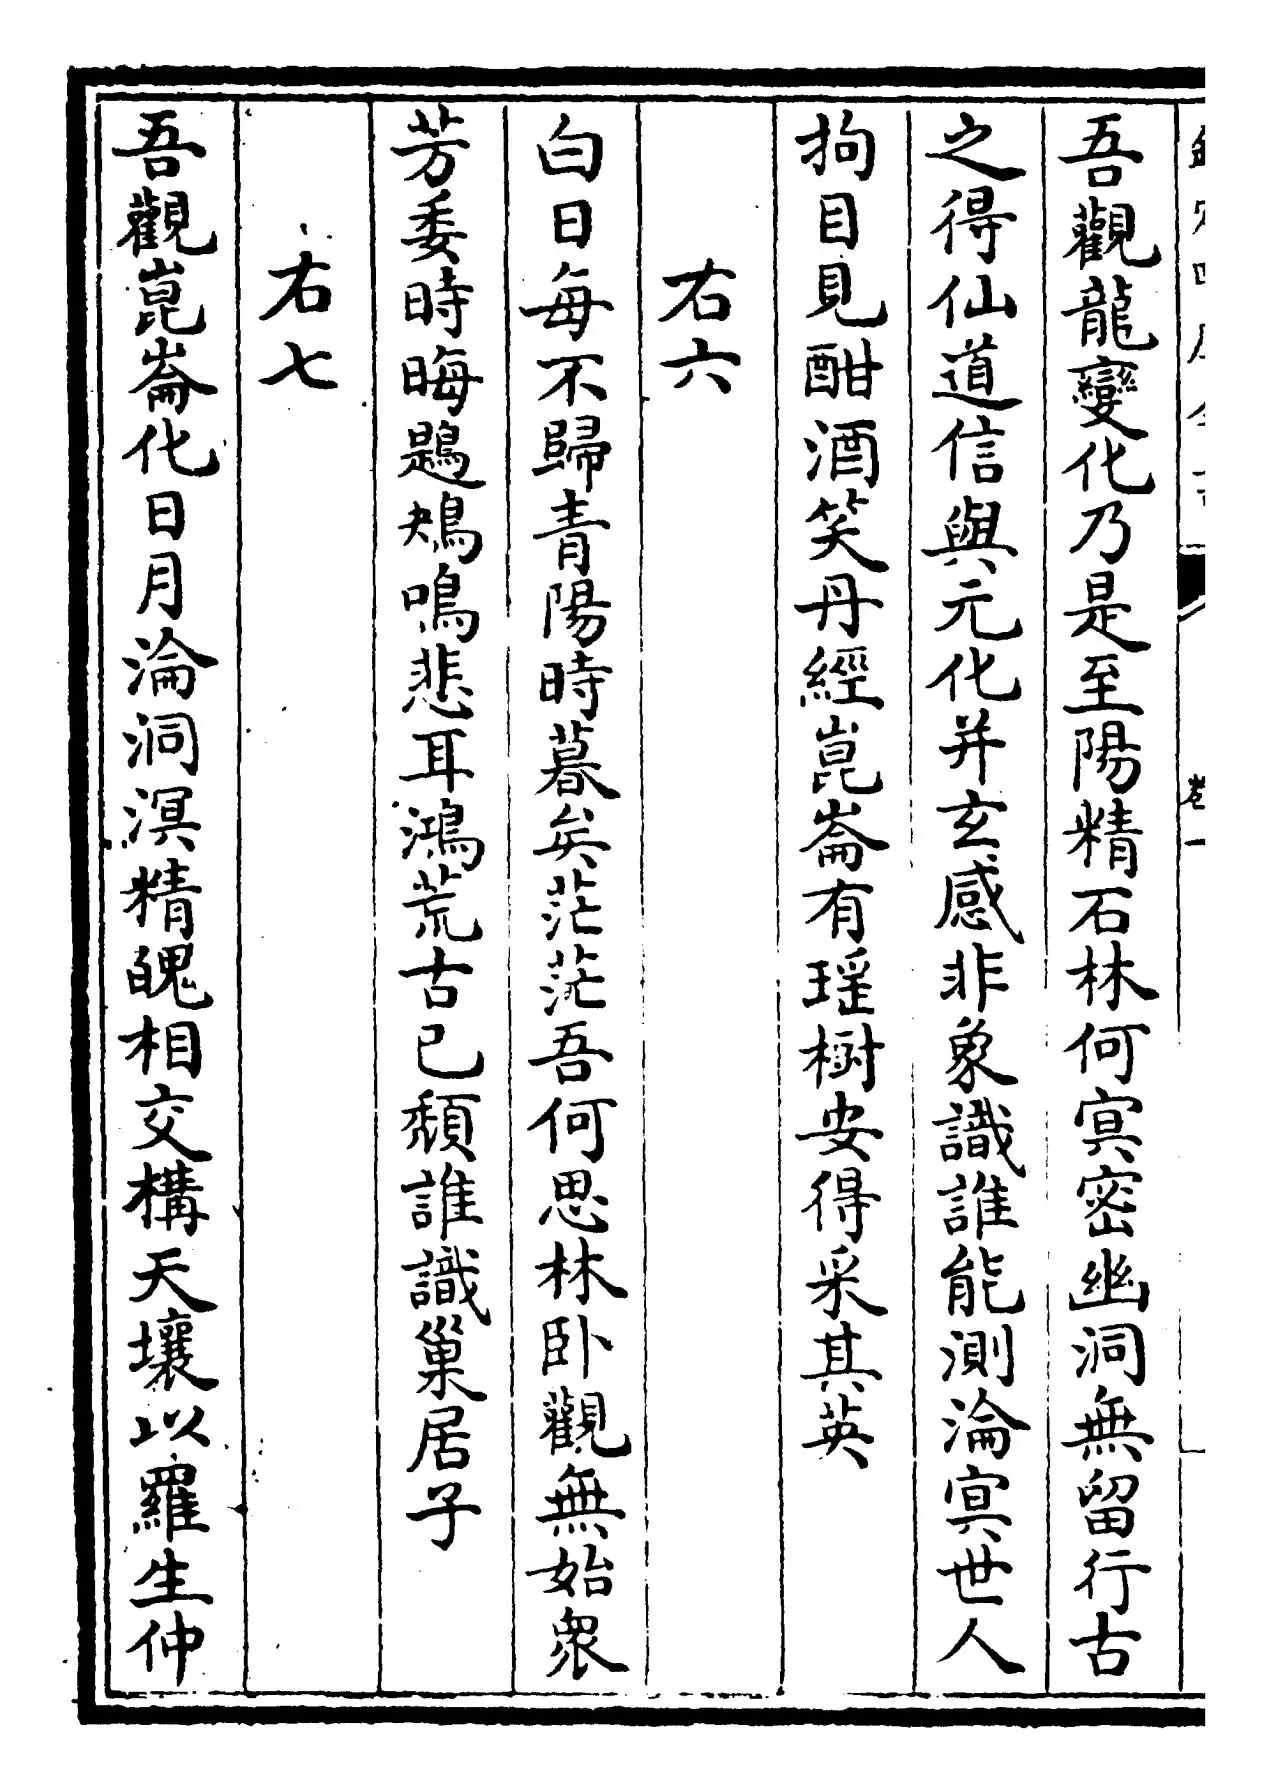 欽定四庫全書 卷一
吾觀龍變化乃是至陽精石林何㝠密幽洞無留行古
之得仙道信與元化并玄感非象識誰能測淪㝠世人
拘目見酣酒笑丹經崑崙有瑶樹安得采其英
右六
白日每不歸青陽時暮矣茫茫吾何思林卧觀無始衆
芳委時晦鶗鴂鳴悲耳鴻荒古已頽誰識巢居子
右七
吾觀崑崙化日月淪洞溟精魄相交構天壤以羅生仲